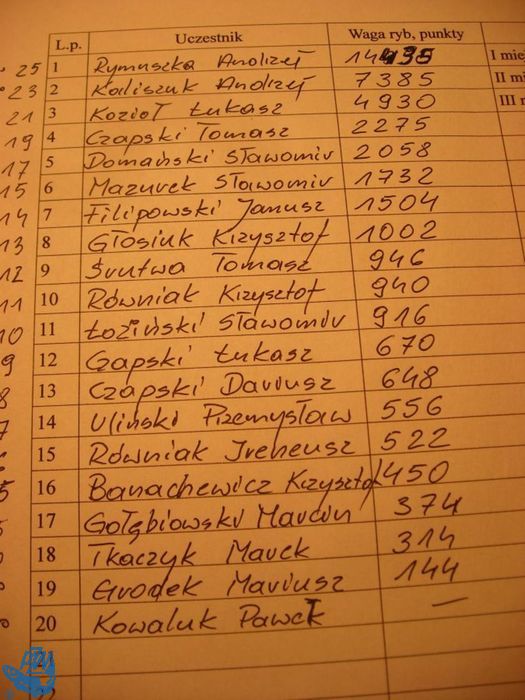 L.p. Uczestnik Waga ryb, punkty
25 1 Rymuszka Andrzej 14435 I mie
23 2 Kaliszuk Andrzej 7385 II mi
21 3 Kozioł Łukasz 4930 III
19 4 Czapski Tomasz 2275
17 5 Domański Sławomir 2058
15 6 Mazurek Sławomir 1732
14 7 Filipowski Janusz 1504
13 8 Głosiuk Krzysztof 1002
12 9 Srutwa Tomasz 946
11 10 Równiak Krzysztof 940
10 11 Łoziński Sławomir 916
9 12 Czapski Łukasz 670
8 13 Czapski Dariusz 648
7 14 Uliński Przemysław 556
15 Równiak Ireneusz 522
5 16 Banachewicz Krzysztof 450
17 Gołębiowski Marcin 374
18 Tkaczyk Marek 314
19 Grodek Mariusz 144
20 Kowaluk Paweł —
21